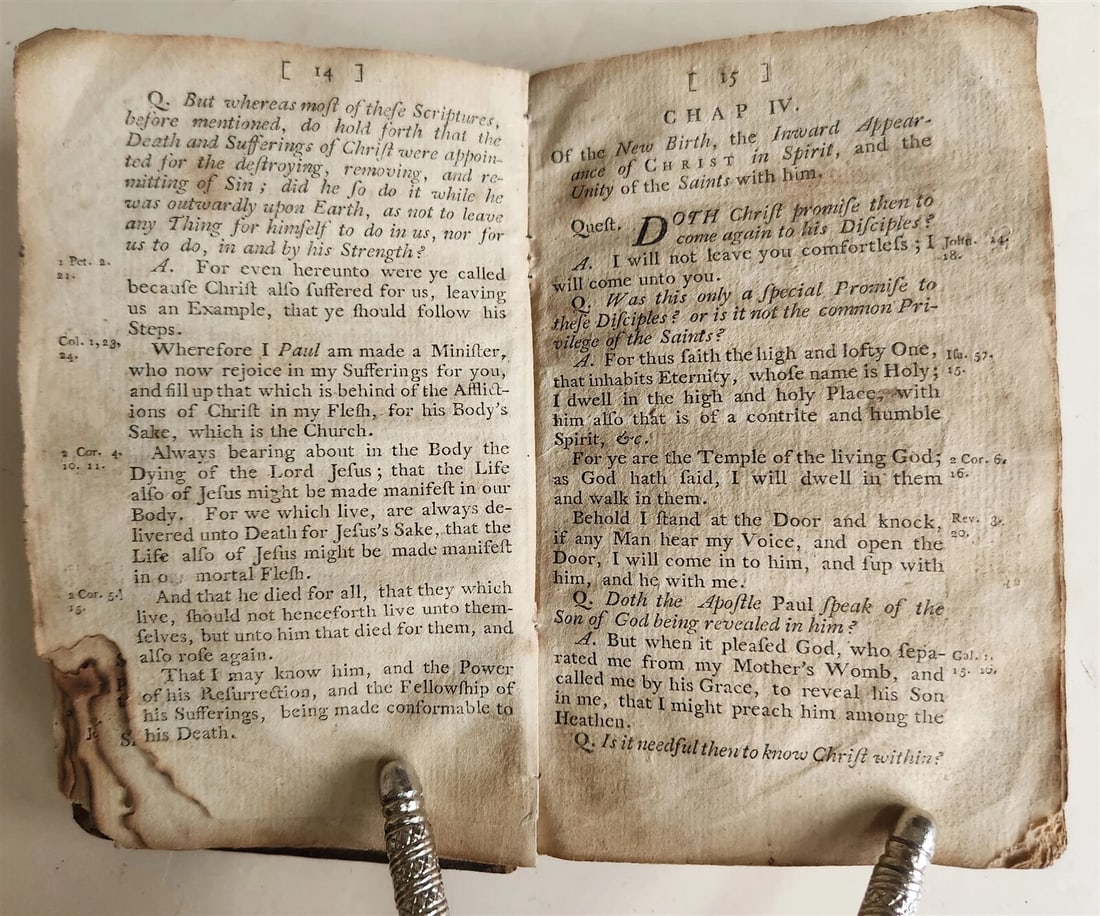 [ 14 ]
Q. But whereas moſt of theſe Scriptures,
before mentioned, do hold forth that the
Death and Sufferings of Chriſt were appoin-
ted for the deſtroying, removing, and re-
mitting of Sin ; did he ſo do it while he
was outwardly upon Earth, as not to leave
any Thing for himſelf to do in us, nor for
us to do, in and by his Strength ?
1 Pet. 2.
21.
A. For even hereunto were ye called
becauſe Chriſt alſo ſuffered for us, leaving
us an Example, that ye ſhould follow his
Steps.
Col. 1, 23,
24.
Wherefore I Paul am made a Miniſter,
who now rejoice in my Sufferings for you,
and fill up that which is behind of the Afflict-
ions of Chriſt in my Fleſh, for his Body's
Sake, which is the Church.
2 Cor. 4.
10. 11.
Always bearing about in the Body the
Dying of the Lord Jeſus ; that the Life
alſo of Jeſus might be made manifeſt in our
Body. For we which live, are always de-
livered unto Death for Jeſus's Sake, that the
Life alſo of Jeſus might be made manifeſt
in o mortal Fleſh.
2 Cor. 5.
15.
And that he died for all, that they which
live, ſhould not henceforth live unto them-
ſelves, but unto him that died for them, and
alſo roſe again.
That I may know him, and the Power
of his Reſurrection, and the Fellowſhip of
his Sufferings, being made conformable to
his Death.
[ 15 ]
CHAP IV.
Of the New Birth, the Inward Appear-
ance of CHRIST in Spirit, and the
Unity of the Saints with him.
Queſt. DOTH Chriſt promiſe then to
come again to his Diſciples ?
A. I will not leave you comfortleſs ; I
will come unto you.
John. 14.
18.
Q. Was this only a ſpecial Promiſe to
theſe Diſciples ? or is it not the common Pri-
vilege of the Saints ?
A. For thus ſaith the high and lofty One,
that inhabits Eternity, whoſe name is Holy ;
I dwell in the high and holy Place, with
him alſo that is of a contrite and humble
Spirit, &c.
Iſa. 57.
15.
For ye are the Temple of the living God ;
as God hath ſaid, I will dwell in them
and walk in them.
2 Cor. 6.
16.
Behold I ſtand at the Door and knock,
if any Man hear my Voice, and open the
Door, I will come in to him, and ſup with
him, and he with me.
Rev. 3.
20.
Q. Doth the Apoſtle Paul ſpeak of the
Son of God being revealed in him ?
A. But when it pleaſed God, who ſepa-
rated me from my Mother's Womb, and
called me by his Grace, to reveal his Son
in me, that I might preach him among the
Heathen.
Gal. 1.
15. 16.
Q. Is it needful then to know Chriſt within ?